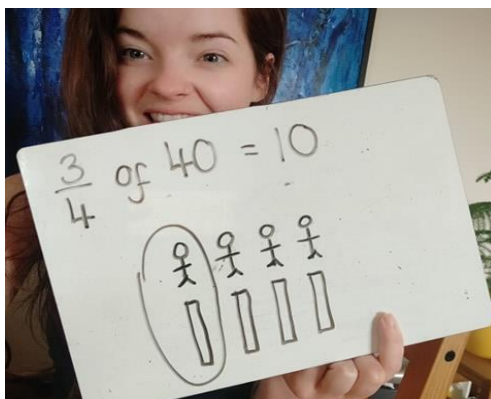 3/4 of 40 = 10